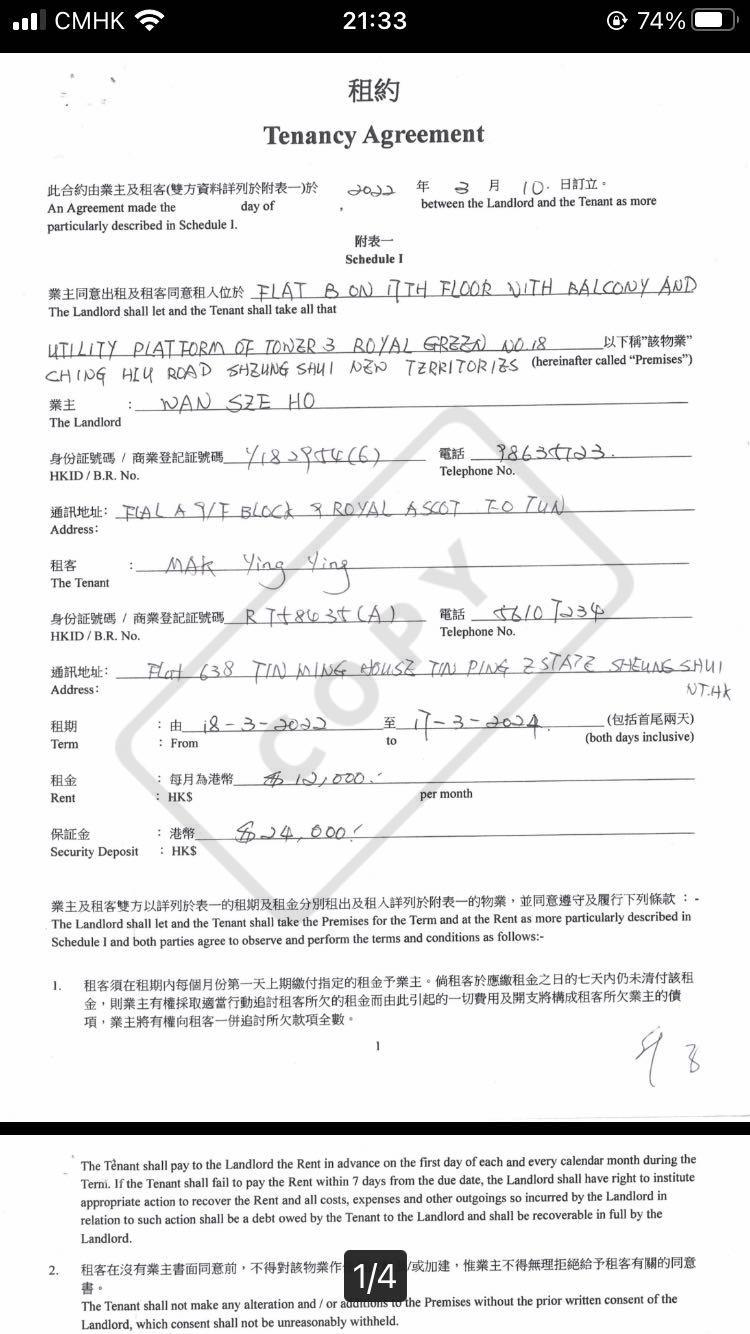 CMHK 21:33 74%
租約
Tenancy Agreement
此合約由業主及租客(雙方資料詳列於附表一)於 2022 年 3 月 10. 日訂立。
An Agreement made the day of , between the Landlord and the Tenant as more
particularly described in Schedule I.
附表一
Schedule I
業主同意出租及租客同意租入位於 FLAT B ON 17TH FLOOR WITH BALCONY AND
The Landlord shall let and the Tenant shall take all that
UTILITY PLATFORM OF TOWER 3 ROYAL GREEN NO.18 以下稱"該物業"
CHING HIU ROAD SHEUNG SHUI NEW TERRITORIES (hereinafter called "Premises")
業主 : WAN SZE HO
The Landlord
身份証號碼 / 商業登記証號碼 電話
HKID / B.R. No. Telephone No.
通訊地址: A 9/F BLOCK ROYAL ASCOT
Address:
租客 : MAK Ying Ying
The Tenant
身份証號碼 / 商業登記証號碼 電話 5610 7234
HKID / B.R. No. Telephone No.
通訊地址: Flat 638 TIN MING HOUSE TIN PING ESTATE SHEUNG SHUI
Address: NT.HK
租期 : 由 18-3-2022 至 17-3-2024 (包括首尾兩天)
Term : From to (both days inclusive)
租金 : 每月為港幣 $12,000.-
Rent : HK$ per month
保証金 : 港幣 $24,000.-
Security Deposit : HK$
COPY
業主及租客雙方以詳列於表一的租期及租金分別租出及租入詳列於附表一的物業，並同意遵守及履行下列條款：-
The Landlord shall let and the Tenant shall take the Premises for the Term and at the Rent as more particularly described in
Schedule I and both parties agree to observe and perform the terms and conditions as follows:-
1. 租客須在租期內每個月份第一天上期繳付指定的租金予業主。倘租客於應繳租金之日的七天內仍未清付該租
金，則業主有權採取適當行動追討租客所欠的租金而由此引起的一切費用及開支將構成租客所欠業主的債
項，業主將有權向租客一併追討所欠款項全數。
1
The Tenant shall pay to the Landlord the Rent in advance on the first day of each and every calendar month during the
Term. If the Tenant shall fail to pay the Rent within 7 days from the due date, the Landlord shall have right to institute
appropriate action to recover the Rent and all costs, expenses and other outgoings so incurred by the Landlord in
relation to such action shall be a debt owed by the Tenant to the Landlord and shall be recoverable in full by the
Landlord.
2. 租客在沒有業主書面同意前，不得對該物業作 /或加建，惟業主不得無理拒絕給予租客有關的同意
書。
1/4
The Tenant shall not make any alteration and / or additions to the Premises without the prior written consent of the
Landlord, which consent shall not be unreasonably withheld.